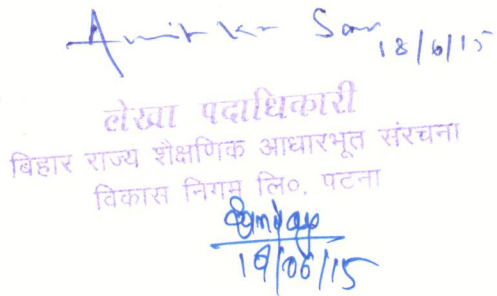 Amit Kr San 18/6/15
लेखा पदाधिकारी
बिहार राज्य शैक्षणिक आधारभूत संरचना
विकास निगम लि०, पटना
19/06/15